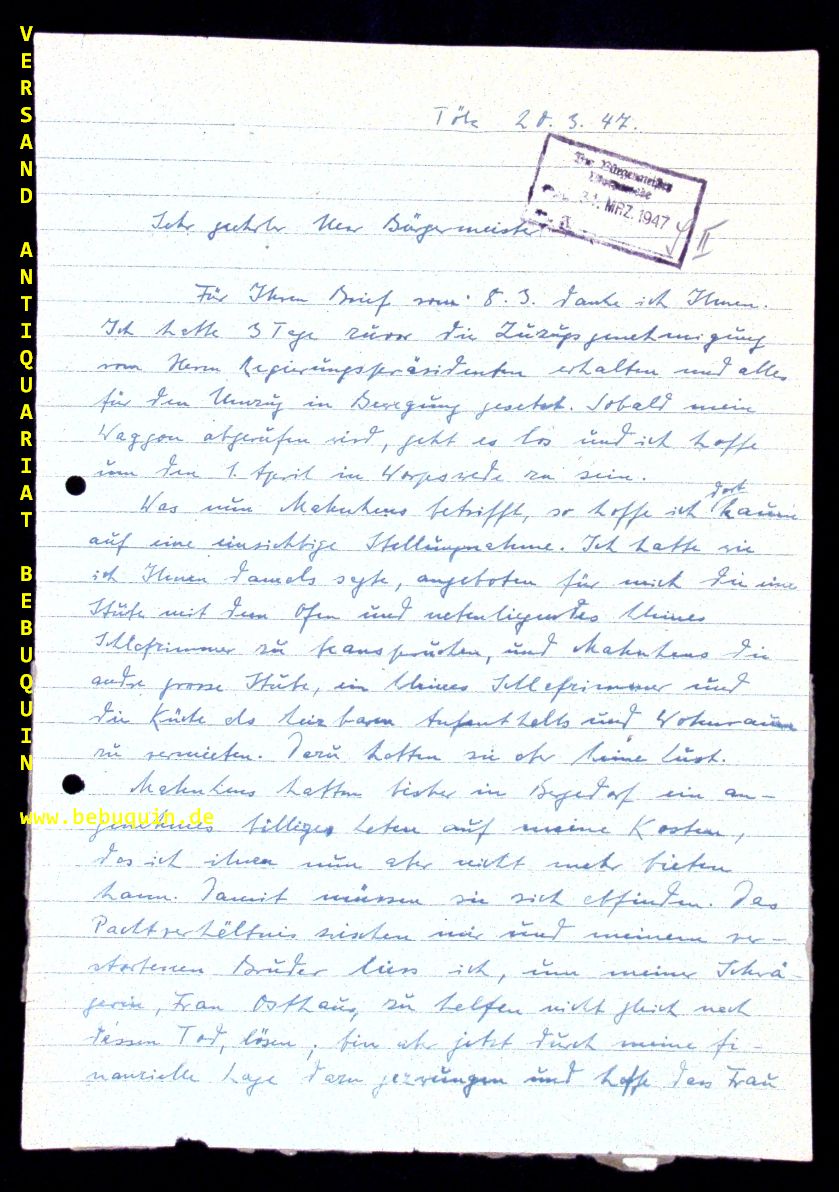 VERSAND ANTIQUARIAT BEBUQUIN
www.bebuquin.de
Tölz 20. 3. 47.
Der Bürgermeister
Worpswede
21. MRZ. 1947
II
Sehr geehrter Herr Bürgermeister
Für Ihren Brief vom 8. 3. danke ich Ihnen.
Ich hatte 3 Tage zuvor die Zuzugsgenehmigung
vom Herrn Regierungspräsidenten erhalten und alles
für den Umzug in Bewegung gesetzt. Sobald mein
Waggon abgerufen wird, geht es los und ich hoffe
um den 1. April in Worpswede zu sein.
Was nun betrifft, so hoffe ich dort kaum
auf eine einsichtige Stellungnahme. Ich hatte wie
ich Ihnen damals sagte, angeboten für mich die eine
Stube mit dem Ofen und nebenliegendes kleines
Schlafzimmer zu beanspruchen, und die
andre grosse Stube, ein kleines Schlafzimmer und
die Küche als heizbaren Aufenthalts und Wohnraum
zu vermieten. Dazu hatten sie aber keine Lust.
hatten bisher in ein an-
genehmes billiges Leben auf meine Kosten,
das ich ihnen nun aber nicht mehr bieten
kann. Damit müssen sie sich abfinden. Das
Pachtverhältnis zwischen mir und meinem ver-
storbenen Bruder liess ich, um meiner Schwä-
gerin, Frau Osthaus, zu helfen nicht gleich nach
dessen Tod, lösen; bin aber jetzt durch meine fi-
nanzielle Lage dazu gezwungen und hoffe dass Frau